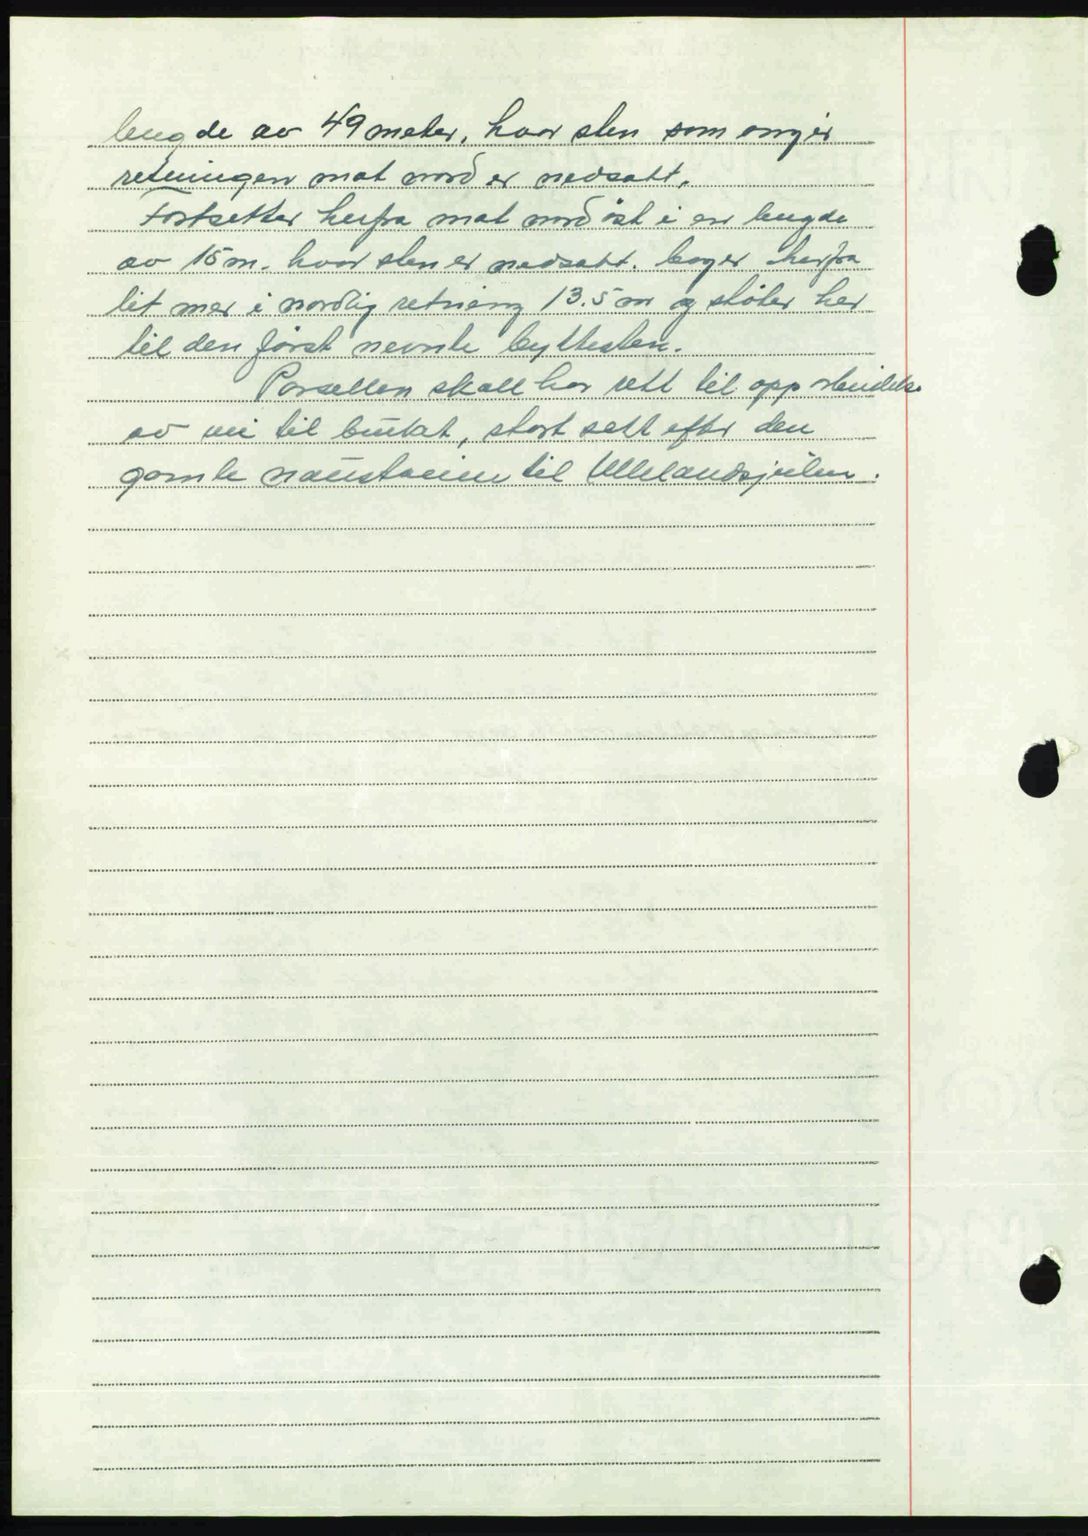 lengde av 49 meter, hvor sten som angir
retningen mot nord er nedsatt.
Fortsetter herfra mot nordöst i en lengde
av 15 m. hvor sten er nedsatt. böyer herfra
lit mer i nordlig retning 13.5 m og stöter her
til den först nevnte byttesten.
Parsellen skal ha rett til opparbeidelse
av vei til bilbat, stort sett efter den
gamle naustveien til